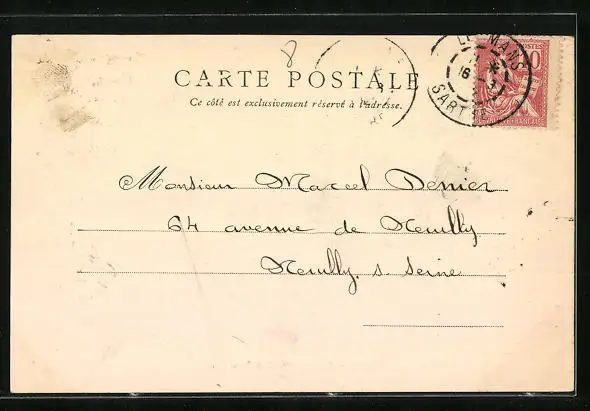 8
LE MANS
16
SARTHE
POSTES
10
RÉPUBLIQUE FRANÇAISE
CARTE POSTALE
Ce côté est exclusivement réservé à l'adresse.
Monsieur Marcel Denier
64 avenue de Neuilly
Neuilly s. Seine